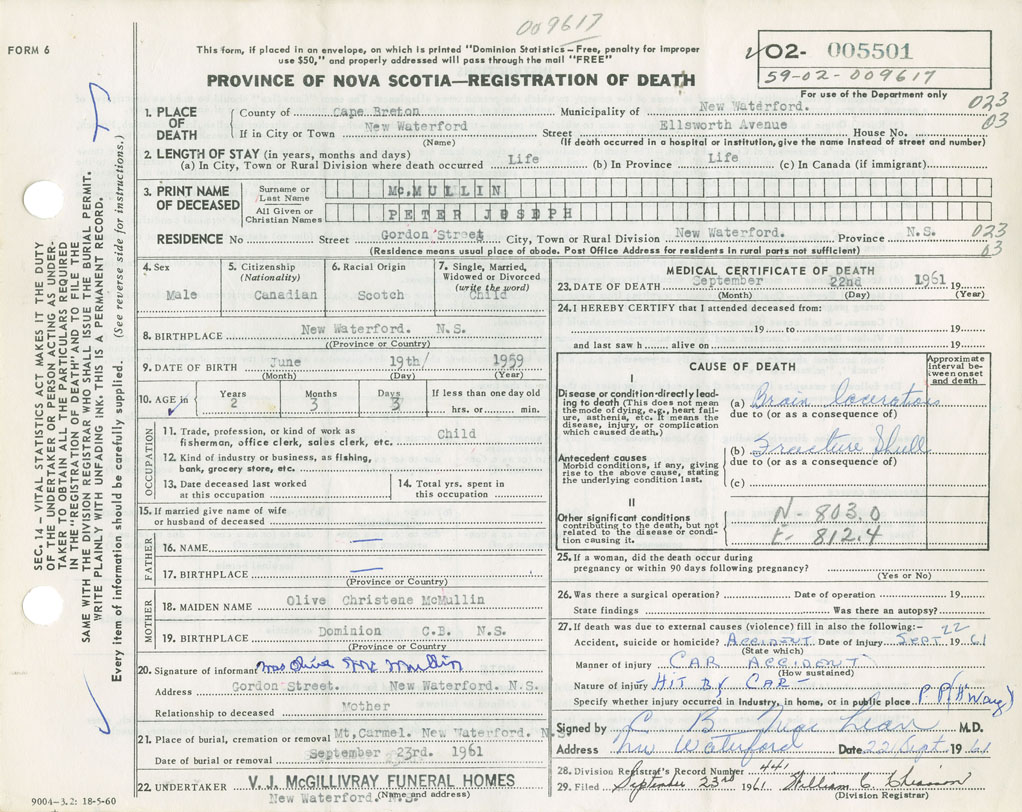 009617
FORM 6
This form, if placed in an envelope, on which is printed "Dominion Statistics—Free, penalty for improper
use $50," and properly addressed will pass through the mail "FREE"
PROVINCE OF NOVA SCOTIA—REGISTRATION OF DEATH
02- 005501
59-02-009617
For use of the Department only
023
03
1. PLACE OF DEATH
County of Cape Breton Municipality of New Waterford.
If in City or Town New Waterford Street Ellsworth Avenue House No.
(Name) (If death occurred in a hospital or institution, give the name instead of street and number)
2. LENGTH OF STAY (in years, months and days)
(a) In City, Town or Rural Division where death occurred Life (b) In Province Life (c) In Canada (if immigrant)
3. PRINT NAME OF DECEASED
Surname or Last Name Mc,MULLIN
All Given or Christian Names PETER JOSEPH
RESIDENCE No Street Gordon Street City, Town or Rural Division New Waterford. Province N.S.
(Residence means usual place of abode. Post Office Address for residents in rural parts not sufficient)
023
03
4. Sex
Male
5. Citizenship
(Nationality)
Canadian
6. Racial Origin
Scotch
7. Single, Married,
Widowed or Divorced
(write the word)
Child
8. BIRTHPLACE New Waterford. N.S.
((Province or Country)
9. DATE OF BIRTH June 19th/ 1959
(Month) (Day) (Year)
10. AGE in Years Months Days If less than one day old
2 3 3 hrs. or min.
OCCUPATION
11. Trade, profession, or kind of work as
fisherman, office clerk, sales clerk, etc. Child
12. Kind of industry or business, as fishing,
bank, grocery store, etc.
13. Date deceased last worked
at this occupation
14. Total yrs. spent in
this occupation
15. If married give name of wife
or husband of deceased
FATHER
16. NAME —
17. BIRTHPLACE —
(Province or Country)
MOTHER
18. MAIDEN NAME Olive Christene McMullin
19. BIRTHPLACE Dominion C.B. N.S.
(Province or Country)
20. Signature of informant Mrs Olive Mc Mullin
Address Gordon Street. New Waterford. N.S.
Relationship to deceased Mother
21. Place of burial, cremation or removal Mt,Carmel. New Waterford. N.S
Date of burial or removal September 23rd. 1961
22. UNDERTAKER V. J. McGILLIVRAY FUNERAL HOMES
New Waterford. N.S.
(Name and address)
9004—3.2: 18-5-60
MEDICAL CERTIFICATE OF DEATH
23. DATE OF DEATH September 22nd 1961 19
(Month) (Day) (Year)
24. I HEREBY CERTIFY that I attended deceased from:
19 to 19
and last saw h alive on 19
CAUSE OF DEATH
Approximate
interval be-
tween onset
and death
I
Disease or condition directly lead-
ing to death (This does not mean
the mode of dying, e.g., heart fail-
ure, asthenia, etc. It means the
disease, injury, or complication
which caused death.)
(a) Brain laceration
due to (or as a consequence of)
Antecedent causes
Morbid conditions, if any, giving
rise to the above cause, stating
the underlying condition last.
(b) Fracture Skull
due to (or as a consequence of)
(c)
II
Other significant conditions
contributing to the death, but not
related to the disease or condi-
tion causing it.
N - 803.0
E - 812.4
25. If a woman, did the death occur during
pregnancy or within 90 days following pregnancy?
(Yes or No)
26. Was there a surgical operation? Date of operation 19
State findings Was there an autopsy?
27. If death was due to external causes (violence) fill in also the following:—
Accident, suicide or homicide? ACCIDENT Date of injury SEPT 22 19 61
(State which)
Manner of injury CAR ACCIDENT
(How sustained)
Nature of injury —HIT BY CAR—
Specify whether injury occurred in Industry, in home, or in public place P P (H Way)
Signed by C B Mac Lean M.D.
Address New Waterford Date 22 Sept. 19 61
28. Division Registrar's Record Number 441
29. Filed September 23rd 1961 William C.
(Division Registrar)
SEC. 14 – VITAL STATISTICS ACT MAKES IT THE DUTY
OF THE UNDERTAKER OR PERSON ACTING AS UNDER-
TAKER TO OBTAIN ALL THE PARTICULARS REQUIRED
IN THE "REGISTRATION OF DEATH" AND TO FILE THE
SAME WITH THE DIVISION REGISTRAR WHO SHALL ISSUE THE BURIAL PERMIT.
WRITE PLAINLY WITH UNFADING INK. THIS IS A PERMANENT RECORD.
Every item of information should be carefully supplied. (See reverse side for instructions.)